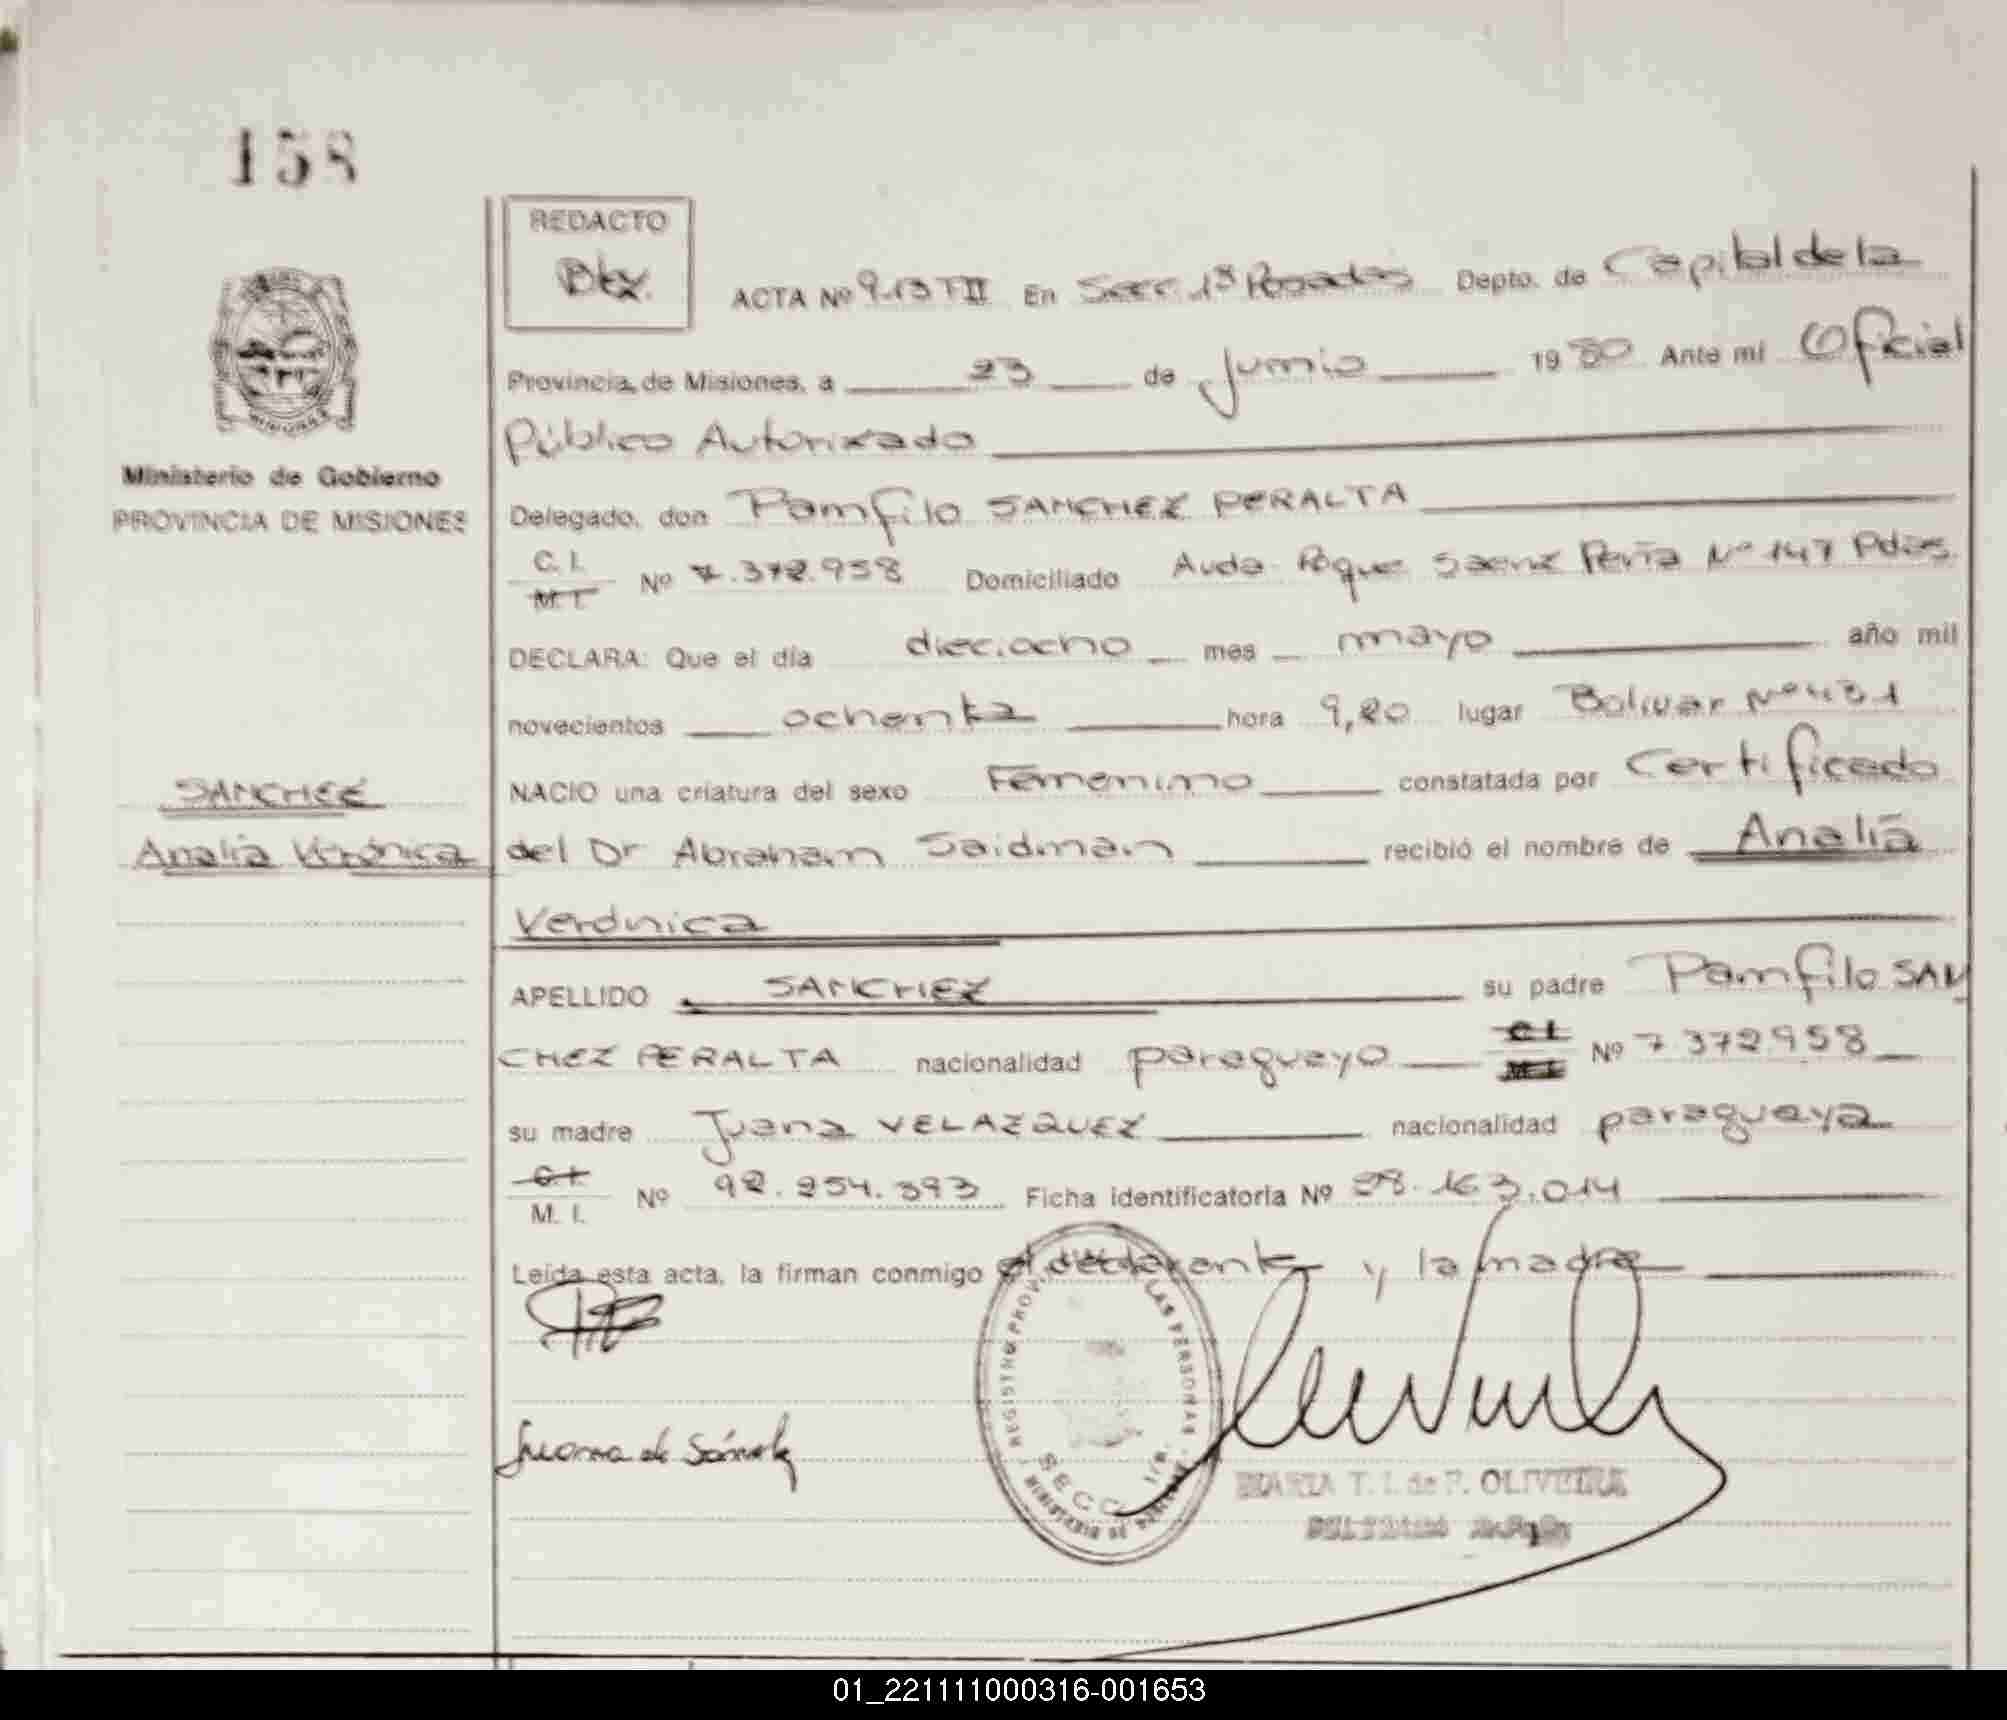 158
REDACTO
ACTA Nº 913 TII En Secc. 1ª Posadas Depto. de Capital de la
Provincia de Misiones, a 23 de Junio 1980 Ante mi Oficial
Público Autorizado
Ministerio de Gobierno
PROVINCIA DE MISIONES
Delegado, don Pamfilo SANCHEZ PERALTA
C. I.
M. I. Nº 7.372.958 Domiciliado Avda. Roque Saenz Peña Nº 147 Pdas.
DECLARA: Que el día dieciocho mes mayo año mil
novecientos ochenta hora 9,20 lugar Bolivar Nº 431
SANCHEZ
NACIO una criatura del sexo Femenino constatada por Certificado
Analía Verónica
del Dr Abraham Saidman recibió el nombre de Analía
Verónica
APELLIDO SANCHEZ su padre Pamfilo SAN
CHEZ PERALTA nacionalidad paraguayo C. I. M. I. Nº 7.372.958
su madre Juana VELAZQUEZ nacionalidad paraguaya
C. I.
M. I. Nº 92.254.393 Ficha identificatoria Nº 28.163.014
Leída esta acta, la firman conmigo el declarante y la madre
REGISTRO PROV. LAS PERSONAS
SECC. 1ra.
MINISTERIO DE
Juana de Sánchez
MARIA T. I. de F. OLIVEIRA
01_221111000316-001653